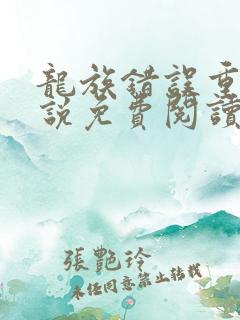 龍族錯誤重
説免費閱讀
張艷玲
未經同意禁止轉載